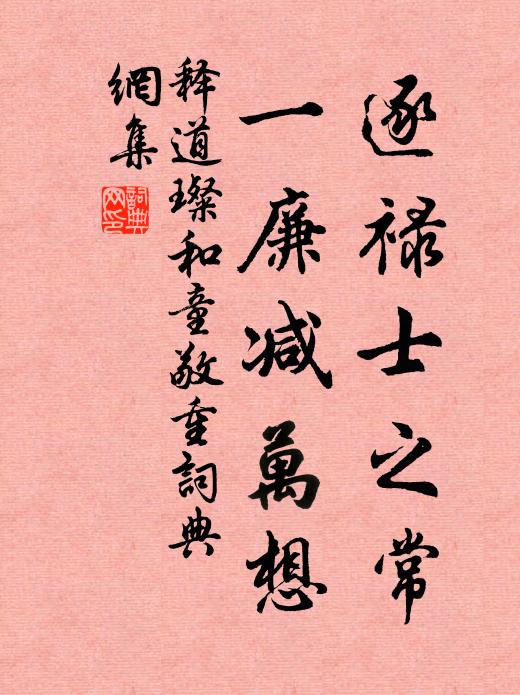 逐禄士之常
一廉减萬想
释道璨和童敬重詞典
網集
詞典网印